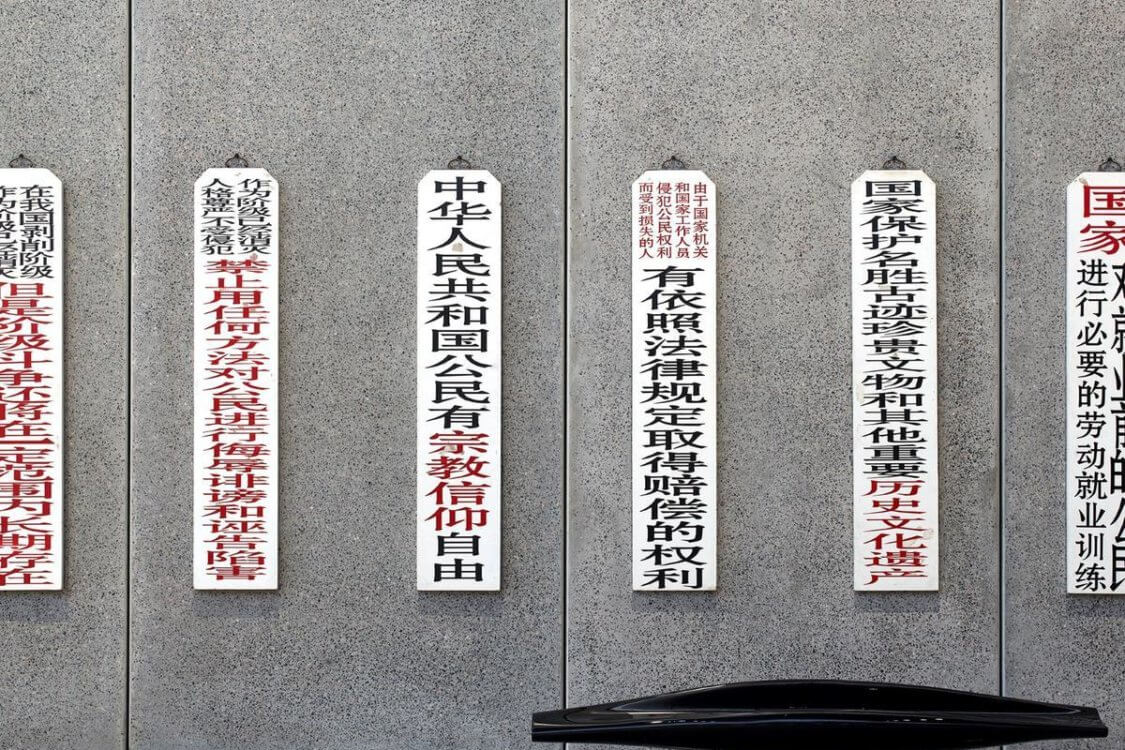 在我国剥削阶级
作为阶级已经消灭
但是阶级斗争还将在一定范围内长期存在
作为阶级已经消灭
人格尊严不受侵犯
禁止用任何方法对公民进行侮辱诽谤和诬告陷害
中华人民共和国公民有宗教信仰自由
由于国家机关
和国家工作人员
侵犯公民权利
而受到损失的人
有依照法律规定取得赔偿的权利
国家保护名胜古迹珍贵文物和其他重要历史文化遗产
国家
对就业前的公民
进行必要的劳动就业训练